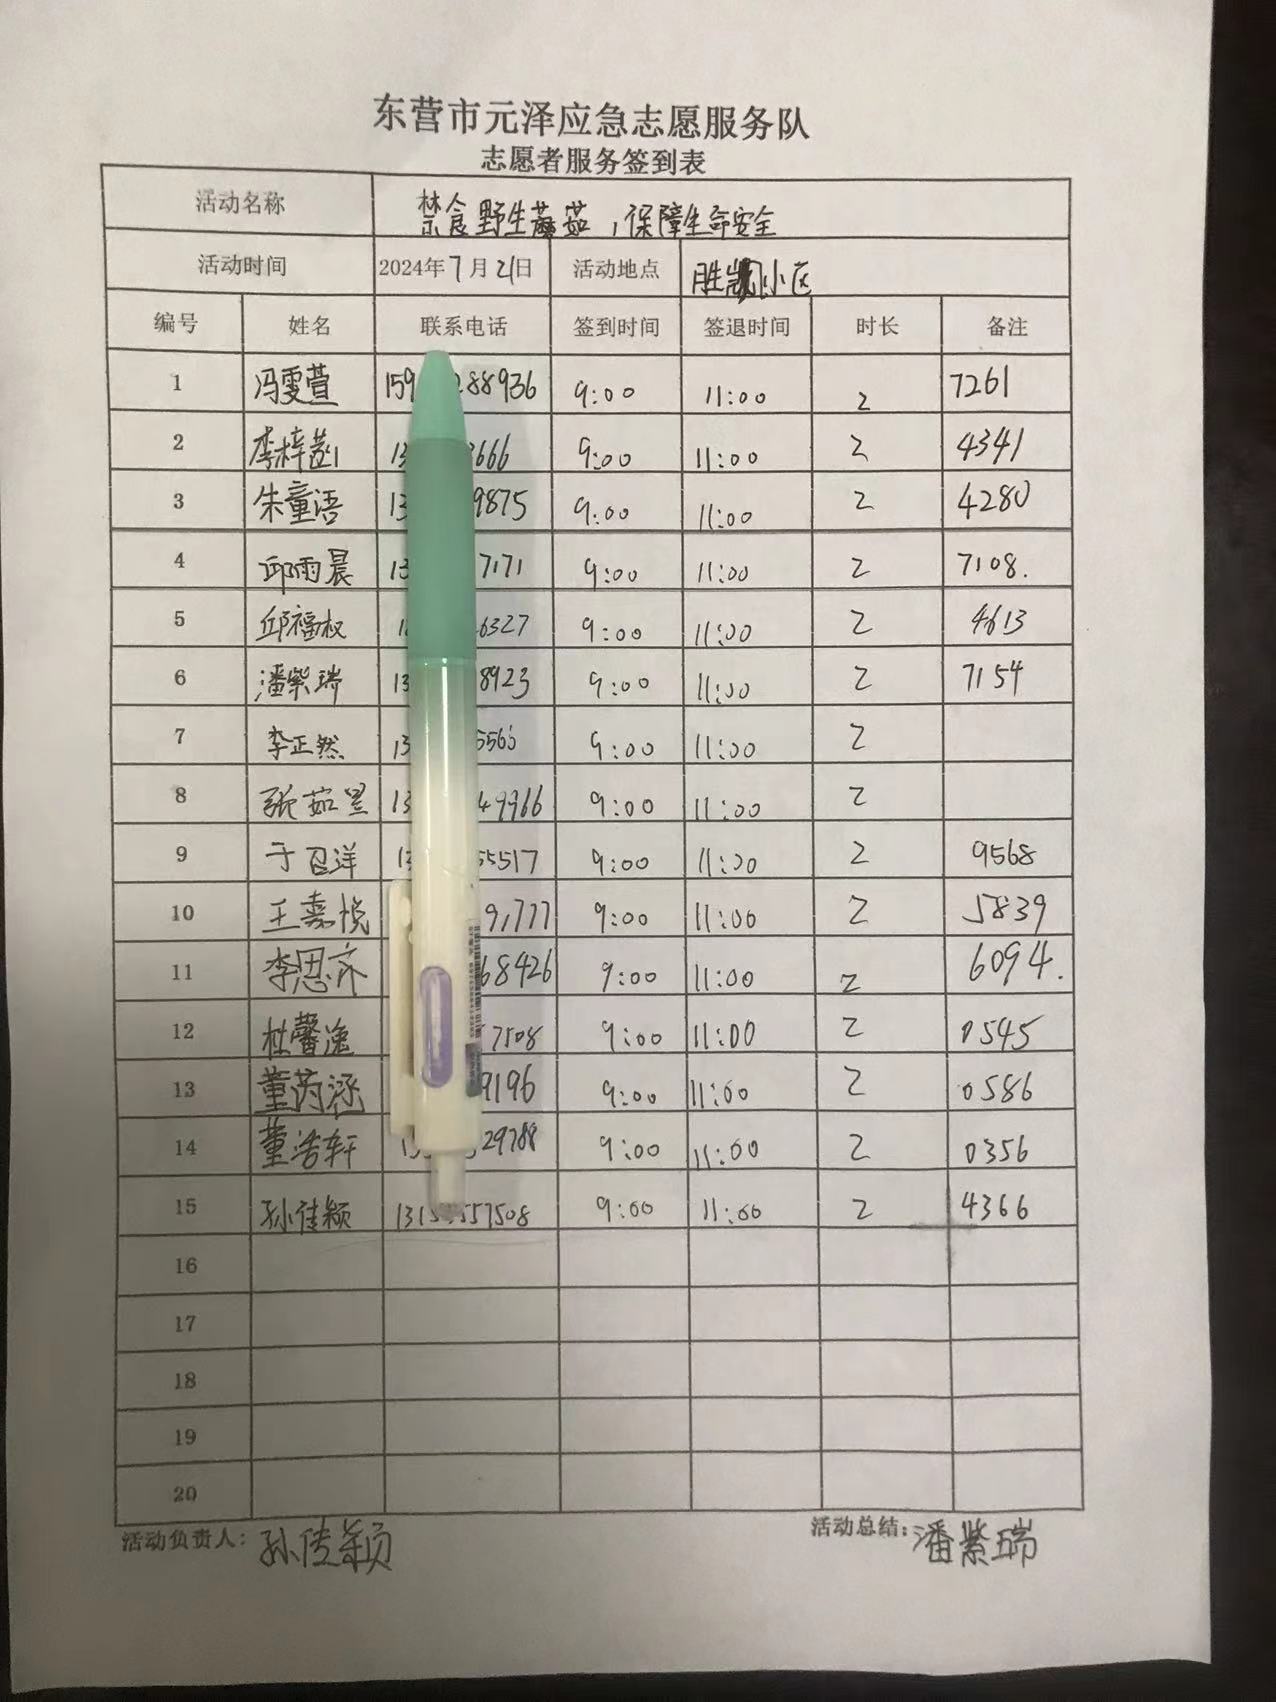 东营市元泽应急志愿服务队
志愿者服务签到表
活动名称 禁食野生蘑菇，保障生命安全
活动时间 2024年7月21日 活动地点 胜凯小区
编号 姓名 联系电话 签到时间 签退时间 时长 备注
1 冯雯萱 159 288936 9:00 11:00 2 7261
2 李梓 13 3666 9:00 11:00 2 4341
3 朱童语 13 9875 9:00 11:00 2 4280
4 邱雨晨 13 7171 9:00 11:00 2 7108.
5 邱福权 1 6327 9:00 11:00 2 4613
6 潘紫瑞 13 8923 9:00 11:00 2 7154
7 李正然 13 556 9:00 11:00 2
8 张茹昱 13 49966 9:00 11:00 2
9 于召洋 13 55517 9:00 11:00 2 9568
10 王嘉悦 9,777 9:00 11:00 2 5839
11 李思齐 68426 9:00 11:00 2 6094.
12 杜馨逸 7508 9:00 11:00 2 0545
13 董芮涵 9196 9:00 11:00 2 0586
14 董浩轩 13 29788 9:00 11:00 2 0356
15 孙佳颖 1315 557508 9:00 11:00 2 4366
16
17
18
19
20
活动负责人：孙佳颖 活动总结：潘紫瑞